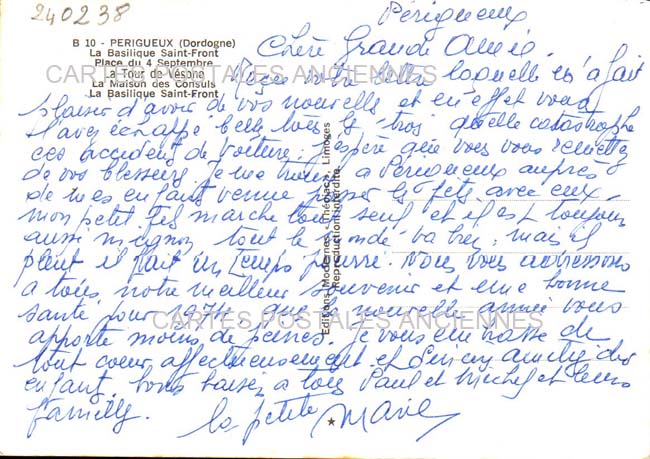 240238
Périgueux
B 10 - PERIGUEUX (Dordogne)
La Basilique Saint-Front
Place du 4 Septembre
La Tour de Vésone
La Maison des Consuls
La Basilique Saint-Front
CARTES POSTALES ANCIENNES
Chère Grande Amie.
Reçu votre laquelle m'a fait
plaisir d'avoir de vos nouvelle et en effet vous
l'avez échappé belle tous les trois quelle catastrophe
ces accident de voiture. j'espère que vous vous remettez
de vos blessures je me trouve a Périgueux auprès
de mes enfants venue passer les fets avec eux.
mon petit fils marche tout seul et il est toujours
aussi mignon tout le monde va bien, mais il
pleut il fait un temps pourri. Nous vous adressons
a tous notre meilleur souvenir et une bonne
santé pour que la nouvelle année vous
CARTES POSTALES ANCIENNES
apporte moins de peines. je vous embrasse de
tout coeur affectueusement et amitiés des
enfant. bons baisers a tous Paul et Michel et leurs
famille.
la petite Marie
Editions Modernes « Théojac », Limoges
Reproduction interdite